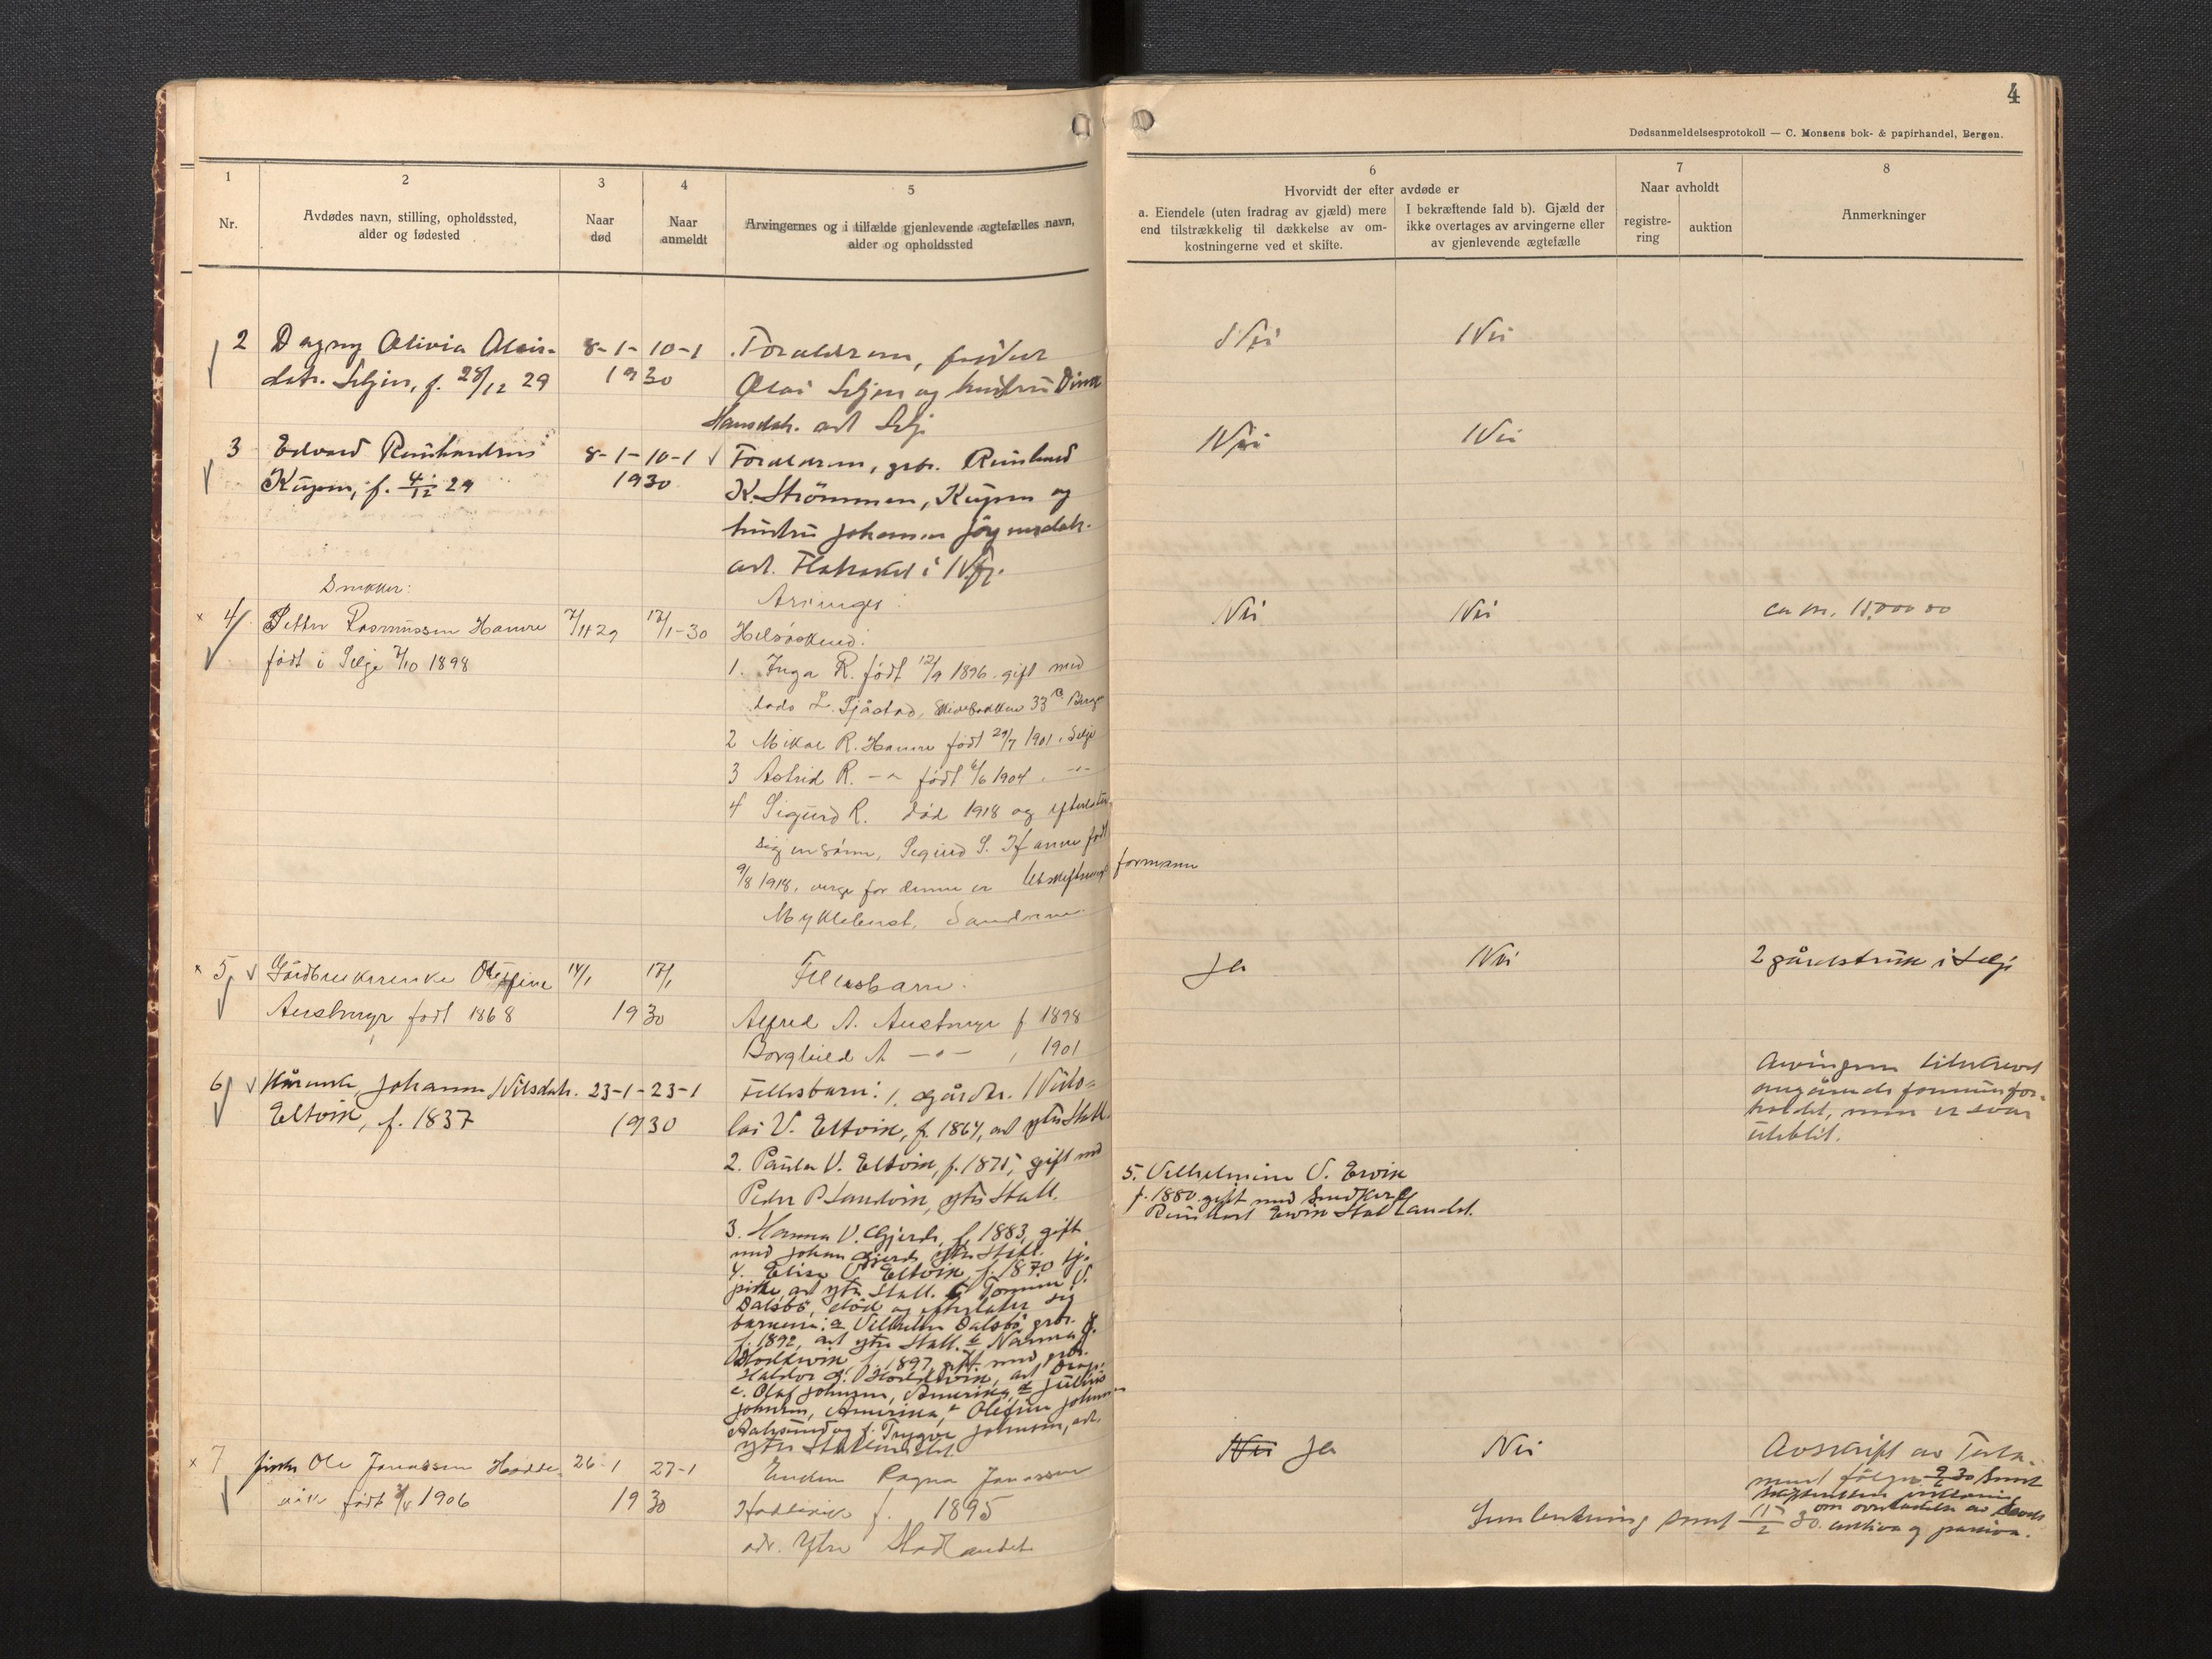 4
Dødsanmeldelsesprotokoll — C. Monsens bok- & papirhandel, Bergen.
1
Nr.
2
Avdødes navn, stilling, opholdssted,
alder og fødested
3
Naar
død
4
Naar
anmeldt
5
Arvingernes og i tilfælde gjenlevende ægtefælles navn,
alder og opholdssted
6
Hvorvidt der efter avdøde er
a. Eiendele (uten fradrag av gjæld) mere
end tilstrækkelig til dækkelse av om-
kostningerne ved et skifte.
I bekræftende fald b). Gjæld der
ikke overtages av arvingerne eller
av gjenlevende ægtefælle
7
Naar avholdt
registre-
ring
auktion
8
Anmerkninger
2 Dagny Olivia
datr. Seljen, f. 28/12 29
8-1- 10-1
1930
Foreldrene,
Olai Seljen og hustru Dina
Hansdatr. adr Selje
Nei
Nei
3 Edvard
f. 4/12 29
8-1-10-1
1930
Foreldrene, gbr.
K. Strömmen, og
hustru Johanne Jörgensdatr.
adr. Flatraket i Nfj.
Nei
Nei
Snekker:
x 4 Petter Rasmussen Hamre
født i Selje 7/10 1898
7/11 29
17/1-30
Arvinger:
Helsøsken:
1. Inga R. født 12/9 1896. gift med
L. Tjåstad, 33 B Bergen
2 Mikal R. Hamre født 29/7 1901. Selje
3 Astrid R. -"- født 6/6 1904. -"-
4 Sigurd R. død 1918 og efterlater
sig en sønn, Sigurd S. Hamre født
9/8 1918, verge for denne er
formann
Myklebust, Sandane
Nei
Nei
ca kr. 15,000 00
x 5 Gårdbrukerenke
født 1868
14/1
17/1
1930
Fellesbarn.
Alfred A. f 1898
Borghild A -"- , 1901
Ja
Nei
2 gårdsbruk i Selje
6 Kårenke Johanne Nilsdatr.
Eltvik, f. 1837
23-1-23-1
1930
Fellesbarn: 1. gårdbr. Niko-
lai V. Eltvik, f. 1864, adr ytre Statt.
2. Paula V. Eltvik, f. 1875, gift med
Peder P. Sandvik, ytre Statt.
3. Hanna V. Gjerde, f. 1883, gift
med Johan Gjerde, ytre Statt.
4. Elise V. Eltvik, f. 1870 tj.
pike, adr ytre Statt.
Dalsbö, död og efterlater sig
barnene: a Vilhelm Dalsbö, gbr.
f. 1892, adr ytre Statt. b
f. 1897 gift med gbr.
c. Olaf Johnsen, Amerika, d Julius
Johnsen, Amerika, e Olefine Johnsen
Aalesund og f. Trygve Johnsen, adr.
ytre Stattlandet
5. Vilhelmine V. Ervik
f. 1880 gift med
Ervik Stadlandet.
Arvingene tilskrevet
angående formuesfor-
holdet, men er svar
uteblit.
x 7 fisker Ole Jonassen Hodde-
vik født 1906
26-1
27-1
1930
Enken Ragna Jonassen
Hoddevik f. 1895
adr. Ytre Stadlandet
Nei Ja
Nei
Avskrift av Testa-
ment
om overtakelse av boets
aktiva og passiva.